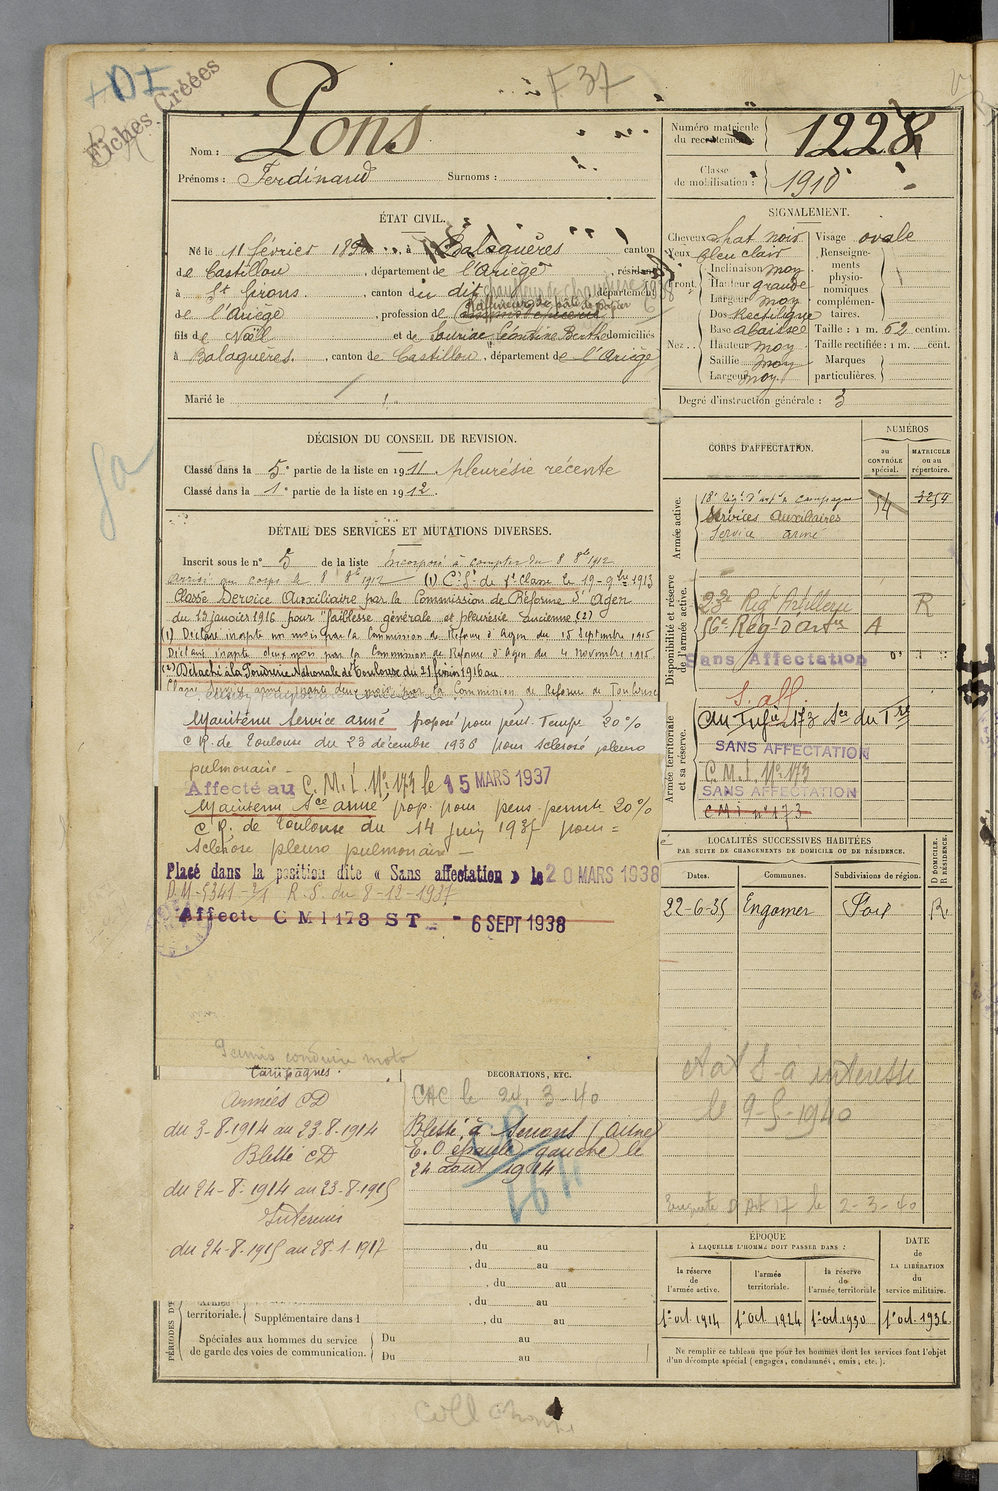 +DI
Fiches Créées
F 37
Nom : Pons
Prénoms : Ferdinand Surnoms :
Numéro matricule du recrutement : 1228
Classe de mobilisation : 1910
ÉTAT CIVIL.
Né le 11 février 1890, à Balaguères canton
de Castillon, département de l'Ariège, résidant
à St Girons, canton du dit département
de l'Ariège, profession de
fils de Noël et de Souriac Léontine Berthe domiciliés
à Balaguères, canton de Castillon, département de l'Ariège
Marié le
SIGNALEMENT.
Cheveux chat noir Visage ovale
Yeux bleu clair
Front. Inclinaison moy
Hauteur grande
Largeur moy
Nez. Dos Rectiligne
Base abaissée
Hauteur moy
Saillie moy
Largeur moy.
Renseignements physionomiques complémentaires.
Taille : 1 m. 62 centim.
Taille rectifiée : 1 m. cent.
Marques particulières.
Degré d'instruction générale : 3
DÉCISION DU CONSEIL DE REVISION.
Classé dans la 5e partie de la liste en 1911 Pleurésie récente
Classé dans la 1e partie de la liste en 1912.
DÉTAIL DES SERVICES ET MUTATIONS DIVERSES.
Inscrit sous le n° 5 de la liste Incorporé à compter du 8 8bre 1912
Arrivé au corps le 8 8bre 1912 (1) Ct St de 1e Classe le 19-9bre 1913
Classé Service Auxiliaire par la Commission de Réforme d'Agen
du 13 janvier 1916 pour "faiblesse générale et pleurésie ancienne (2)
(1) Déclaré inapte un mois par la Commission de Réforme d'Agen du 15 Septembre 1915
Déclaré inapte deux mois par la Commission de Réforme d'Agen du 4 Novembre 1915
(2) Détaché à la Poudrerie Nationale de Toulouse du 21 février 1916 au
Classé service armé inapte deux mois par la Commission de Réforme de Toulouse
Maintenu Service armé proposé pour pens. Temp. 20%
C R. de Toulouse du 23 décembre 1936 pour sclérose pleuro
pulmonaire -
Affecté au C. M. I. N° 173 le 15 MARS 1937
Maintenu Sce armé prop. pour pens. permte 20%
C. R. de Toulouse du 14 juin 1937 pour =
Sclérose pleuro pulmonaire -
Placé dans la position dite « Sans affectation » le 20 MARS 1938
D.M - 5341 - 21 R. S. du 8-12-1937
Affecté C M I 173 S T - 6 SEPT 1938
Permis conduire moto
CORPS D'AFFECTATION.
NUMÉROS
au CONTRÔLE spécial.
MATRICULE ou au répertoire.
Armée active.
18e Régt d'artie campagne 54 3254
Services Auxiliaires
Service armé
Disponibilité et réserve de l'armée active.
23e Régt Artillerie R
56e Régt d'Artie A
Sans Affectation
Armée territoriale et sa réserve.
S. aff
CM Infie 173 Sce du Tre
SANS AFFECTATION
C.M.I. N° 173
SANS AFFECTATION
CMI n° 173
LOCALITÉS SUCCESSIVES HABITÉES
PAR SUITE DE CHANGEMENTS DE DOMICILE OU DE RÉSIDENCE.
Dates. Communes. Subdivisions de région. D DOMICILE. R RÉSIDENCE.
22-6-35 Engomer Foix R.
le 9-5-1940
le 2-3-40
Campagnes.
Armées CD
du 3-8-1914 au 23.8.1914
Blessé CD
du 24-8-1914 au 23-8-1915
Intérieur
du 24-8-1915 au 28-1-1917
DECORATIONS, ETC.
CAC le 24. 3-40
Blessé à
E.O épaule gauche le
24 août 1914
, du au
, du au
, du au
, du au
territoriale. Supplémentaire dans l , du au
Spéciales aux hommes du service de garde des voies de communication. Du au
Du au
ÉPOQUE
À LAQUELLE L'HOMME DOIT PASSER DANS :
la réserve de l'armée active.
l'armée territoriale.
la réserve de l'armée territoriale
DATE DE LA LIBÉRATION du service militaire.
1er oct. 1914 1er oct. 1924 1er oct. 1930 1er oct. 1936
Ne remplir ce tableau que pour les hommes dont les services font l'objet
d'un décompte spécial (engagés, condamnés, omis, etc.).